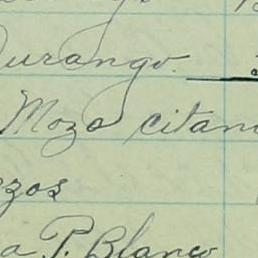 Durango.
Mozo citan
zos
a P. Blanco